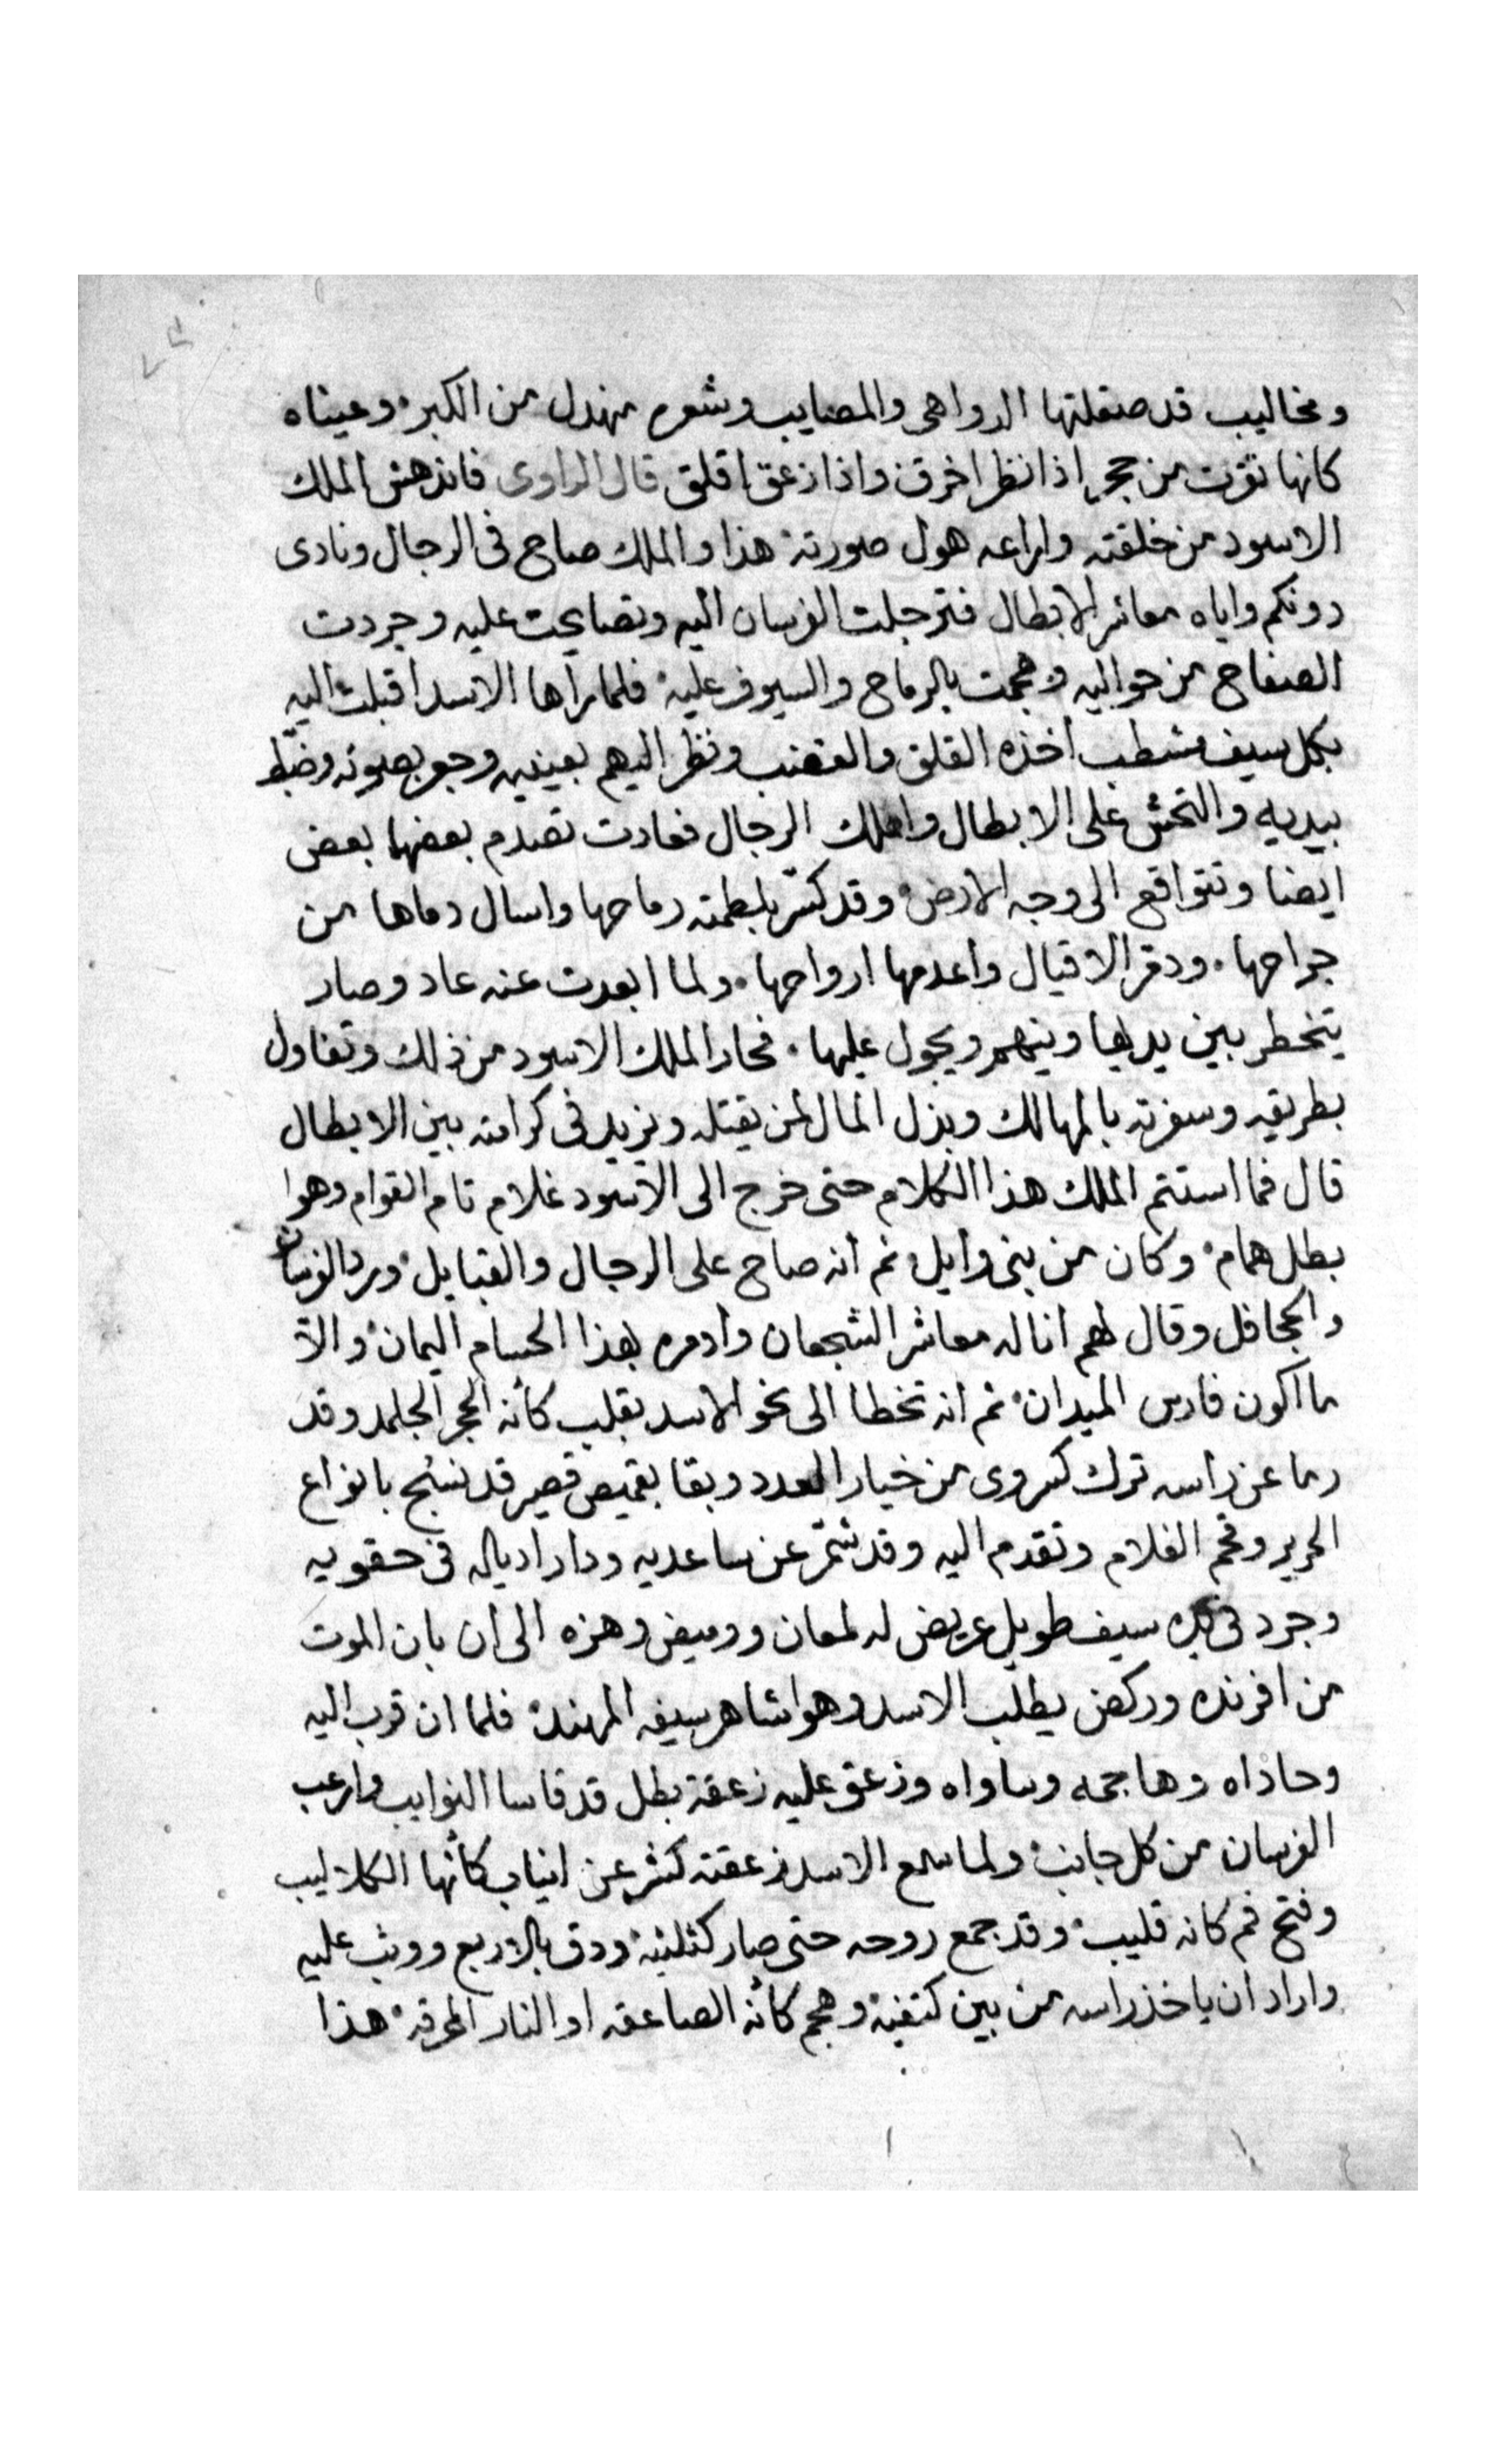 ومخاليب قد صقلتها الدواهى والمصايب وشعره مهدل من الكبر وعيناه
كانها نقرت من حجر اذا نظر اخرق واذا زعق اقلق قال الراوى فاندهش الملك
الاسود من خلقته واراعه هول صورته هذا والملك صاح فى الرجال ونادى
دونكم واياه معاشر الابطال فترجلت الفرسان اليه وتصايحت عليه وجردت
الصفاح من حواليه وهجمت بالرماح والسيوف عليه فلما راها الاسد اقبلت اليه
بكل سيف مشطب اخذه القلق والغضب ونظر اليهم بعينيه وجعر بصوته وخبط
بيديه والتحش على الابطال واهلك الرجال فعادت تصدم بعضها بعض
ايضا وتتواقع الى وجه الارض وقد كسّر بلطمته رماحها واسال دماها من
جراحها ودقر الاقيال واعدمها ارواحها ولما ابعدت عنه عاد وصار
يتخطر بين يديها وينهمر ويجول عليها فحار الملك الاسود من ذلك وتفاول
بطريقه وسفرته بالمهالك وبذل المال لمن يقتله ونزيد فى كرامته بين الابطال
قال فما استتم الملك هذا الكلام حتى خرج الى الاسود غلام تام القوام وهوا
بطل همام وكان من بنى وايل ثم انه صاح على الرجال والقبايل ورد الفرسان
والجحافل وقال لهم انا له معاشر الشجعان وادمره بهذا الحسام اليمان والا
ما اكون فارس الميدان ثم انه تخطا الى نحو الاسد بقلب كأنه الحجر الجلمد وقد
رما عن راسه ترك كسروى من خيار العدد وبقا بقميص قصير قد نسج بانواع
الحرير وفخم الغلام وتقدم اليه وقد شمّر عن ساعديه ودار ادياله فى حقويه
وجرد فى يده سيف طويل عريض له لمعان ووميض وهزه الى ان بان الموت
من افرنده وركض يطلب الاسد وهوا شاهر سيفه المهند فلما ان قرب اليه
وحاذاه وهاجمه وساواه وزعق عليه زعقة بطل قد قاسا النوايب وارعب
الفرسان من كل جانب ولما سمع الاسد زعقته كشر عن انياب كأنها الكلاليب
وفتح فم كانه قليب وقد جمع روحه حتى صار كثلثيه ودق بالاربع ووثب عليه
واراد ان ياخذ راسه من بين كتفيه وهجم كأنه الصاعقه او النار المحرقه هذا